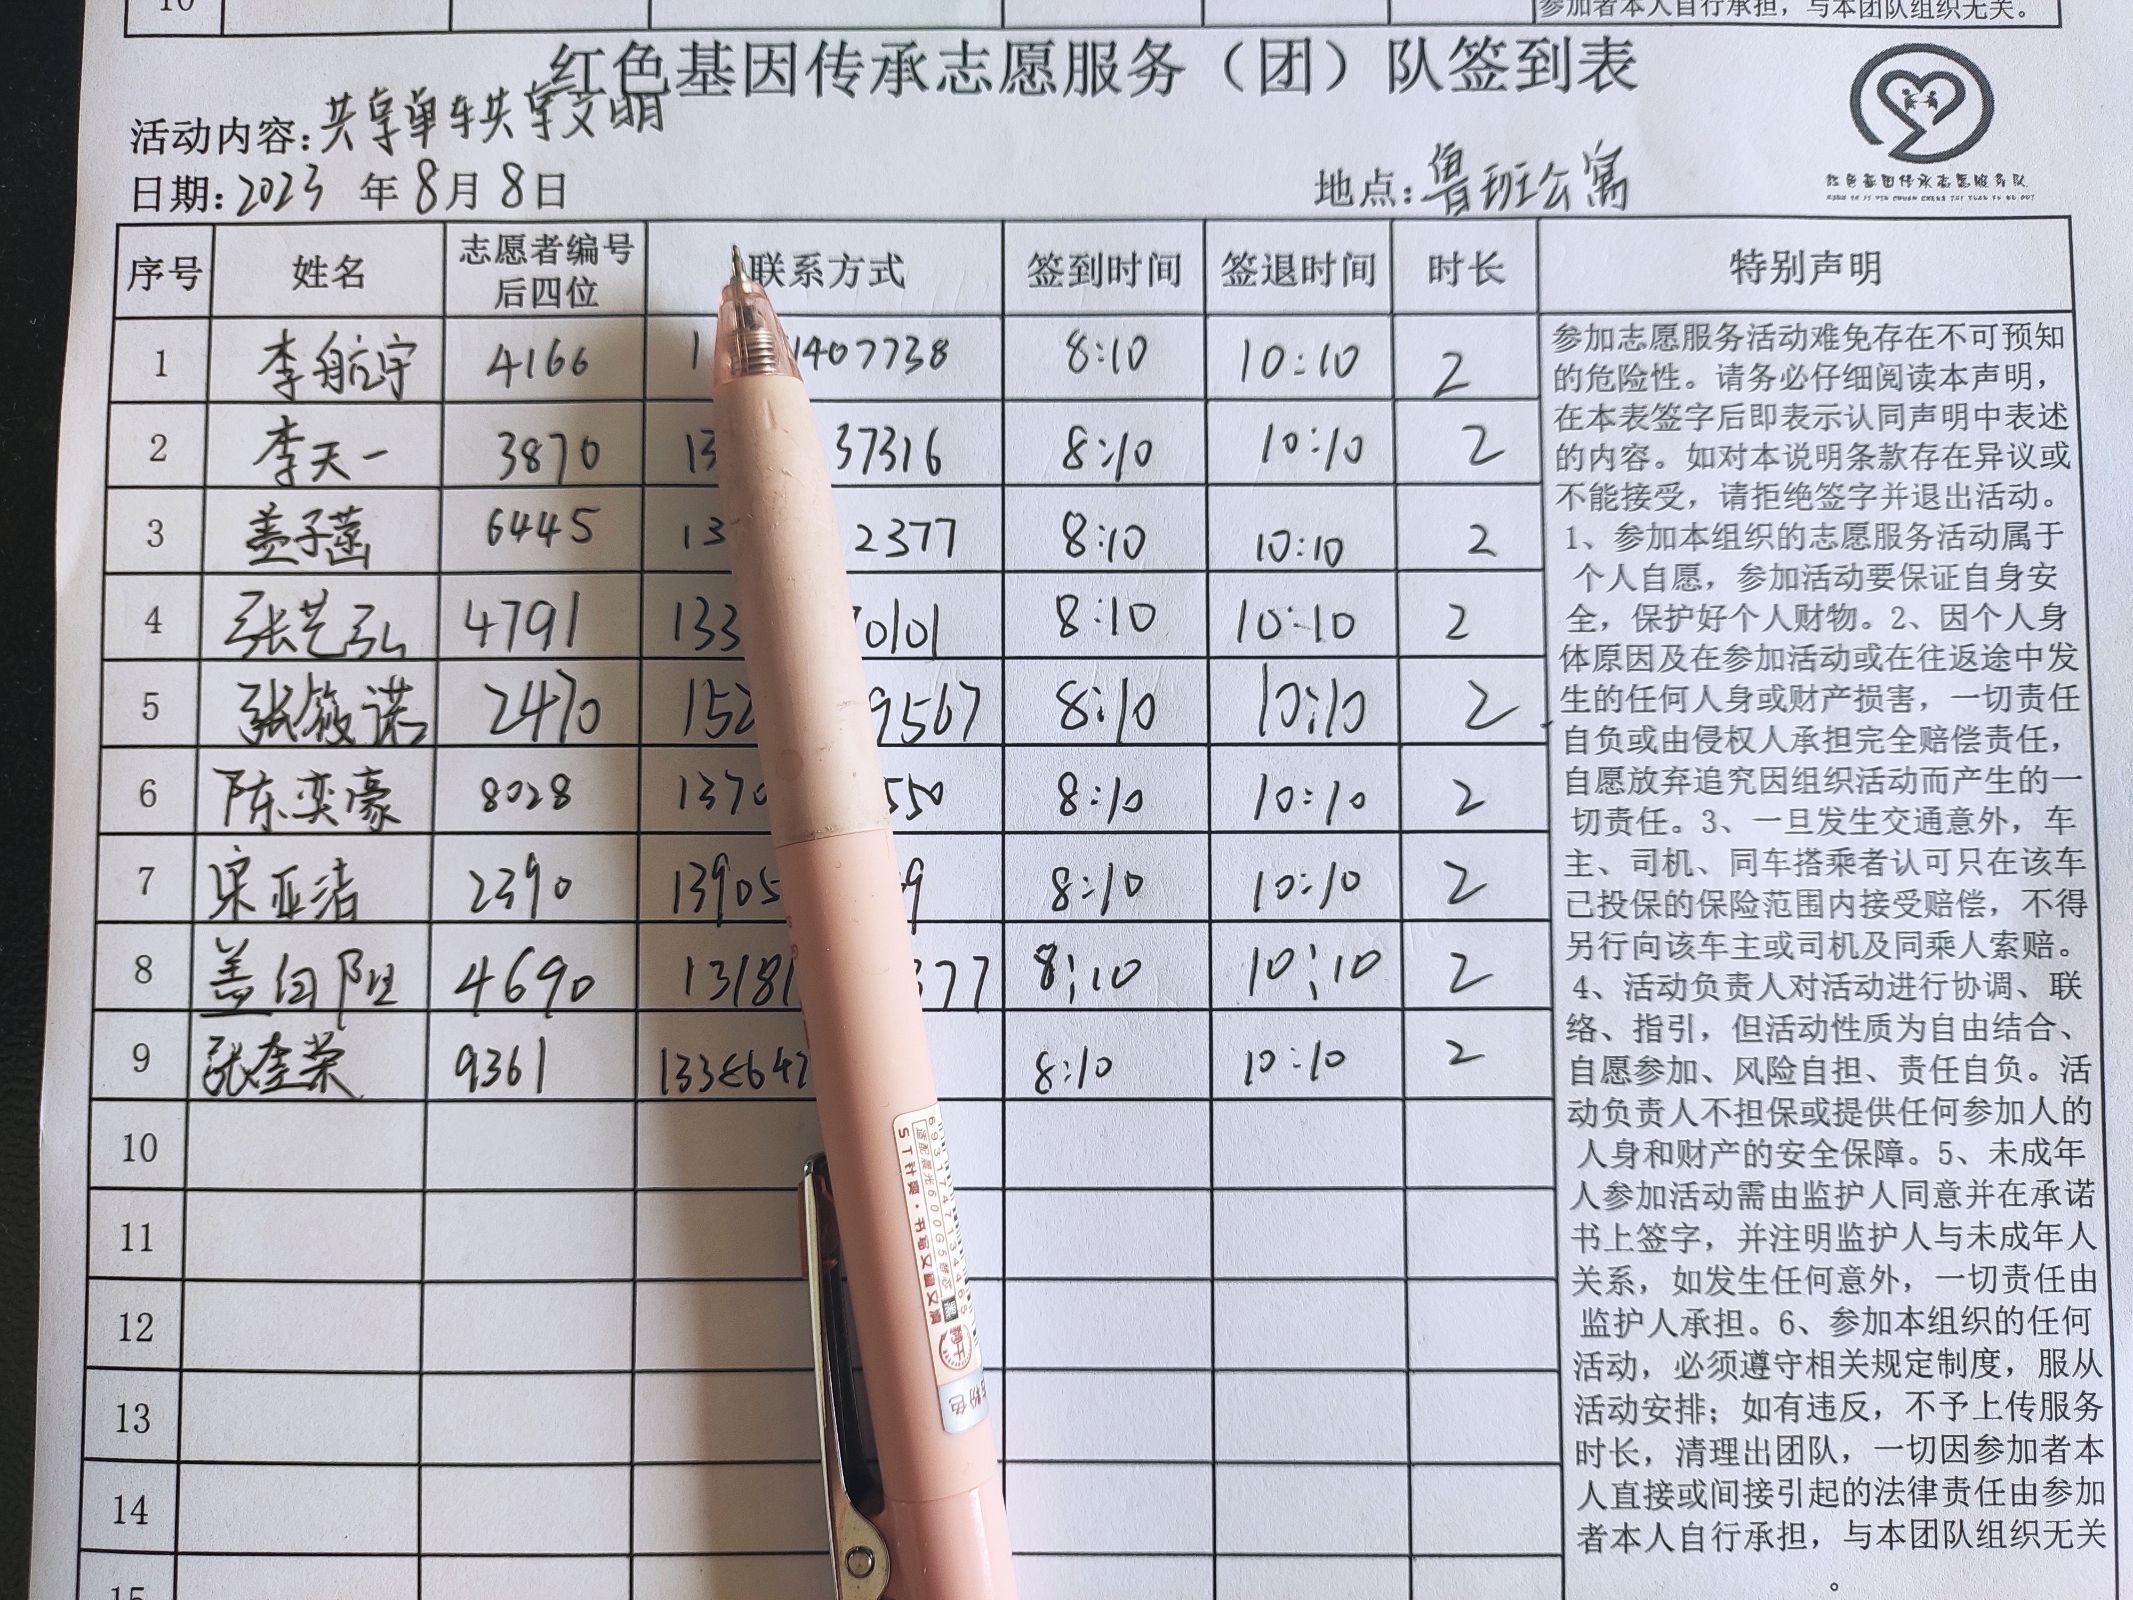 10
参加者本人自行承担，与本团队组织无关。
红色基因传承志愿服务（团）队签到表
活动内容：共享单车共享文明
日期：2023 年 8月 8日
地点：鲁班公寓
红色基因传承志愿服务队
序号 姓名 志愿者编号后四位 联系方式 签到时间 签退时间 时长 特别声明
1 李航宇 4166 1 1407738 8:10 10:10 2
2 李天一 3870 13 37316 8:10 10:10 2
3 盖子菡 6445 13 2377 8:10 10:10 2
4 张艺弘 4791 133 0101 8:10 10:10 2
5 张筱诺 2470 152 9567 8:10 10:10 2
6 陈奕豪 8028 1370 550 8:10 10:10 2
7 宋亚洁 2390 13905 9 8:10 10:10 2
8 盖向阳 4690 13181 377 8:10 10:10 2
9 张奎荣 9361 8:10 10:10 2
10
11
12
13
14
15
参加志愿服务活动难免存在不可预知
的危险性。请务必仔细阅读本声明，
在本表签字后即表示认同声明中表述
的内容。如对本说明条款存在异议或
不能接受，请拒绝签字并退出活动。
1、参加本组织的志愿服务活动属于
个人自愿，参加活动要保证自身安
全，保护好个人财物。2、因个人身
体原因及在参加活动或在往返途中发
生的任何人身或财产损害，一切责任
自负或由侵权人承担完全赔偿责任，
自愿放弃追究因组织活动而产生的一
切责任。3、一旦发生交通意外，车
主、司机、同车搭乘者认可只在该车
已投保的保险范围内接受赔偿，不得
另行向该车主或司机及同乘人索赔。
4、活动负责人对活动进行协调、联
络、指引，但活动性质为自由结合、
自愿参加、风险自担、责任自负。活
动负责人不担保或提供任何参加人的
人身和财产的安全保障。5、未成年
人参加活动需由监护人同意并在承诺
书上签字，并注明监护人与未成年人
关系，如发生任何意外，一切责任由
监护人承担。6、参加本组织的任何
活动，必须遵守相关规定制度，服从
活动安排；如有违反，不予上传服务
时长，清理出团队，一切因参加者本
人直接或间接引起的法律责任由参加
者本人自行承担，与本团队组织无关
。
6931747134465
适配晨光6600G5替芯
ST针爽·书写又速又滑
粉色